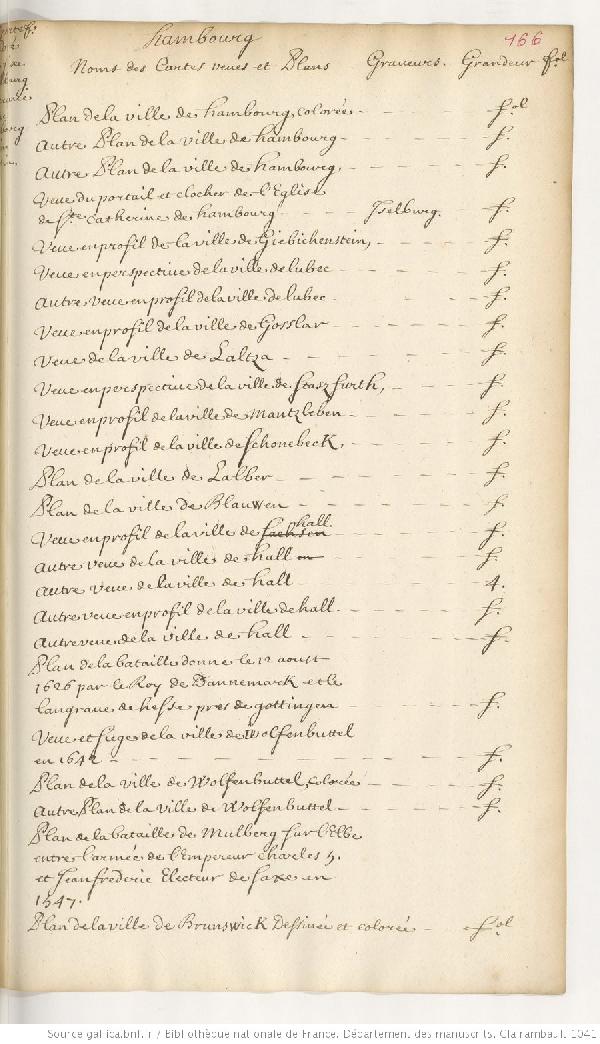 hambourg
166
Noms des Cartes veues et Plans Graveurs. Grandeur fol
Plan de la ville de hambourg, colorée - fol
Autre Plan de la ville de hambourg - f.
Autre Plan de la ville de hambourg, - f.
Veue du portail et clocher de l'Eglise
de Ste Catherine de hambourg - - - - Iselburg. f.
Veue en profil de la ville de Giebichenstein, - - - f.
Veue en perspective de la ville de lubec - - - - f.
Autre veue en profil de la ville de lubec - f.
Veue en profil de la ville de Gosslar - - - - - f.
Veue de la ville de Laltza - - - - f.
Veue en perspective de la ville de staszfurth, - - - f.
Veue en profil de la ville de Mantzleben - - - f.
Veue en profil de la ville de schonebeck, - - - - f.
Plan de la ville de Lalber - - - - - f.
Plan de la ville de Blauwen - - - - f.
Veue en profil de la ville de hall - - - - f.
Autre veue de la ville de hall - - - f.
Autre veue de la ville de hall - - - 4.
Autre veue en profil de la ville de hall. - - - - f.
Autre veue de la ville de hall - - - - f.
Plan de la bataille donne le 12 aoust
1626 par le Roy de Dannemarck et le
langrave de hesse pres de gottingen - - - - f.
Veue et siege de la ville de Wolfenbuttel
en 1642 - - - - - f.
Plan de la ville de Wolfenbuttel, colorée - - - - f.
Autre Plan de la ville de Wolfenbuttel - - - - f.
Plan de la bataille de Mulberg sur l'Elbe
entre l'armée de l'Empereur Charles 5.
et Jean frederic Electeur de saxe en
1547.
Plan de la ville de Brunswick Dessinée et colorée - fol
Source gallica.bnf.fr / Bibliothèque nationale de France. Département des manuscrits. Clairambault 1041